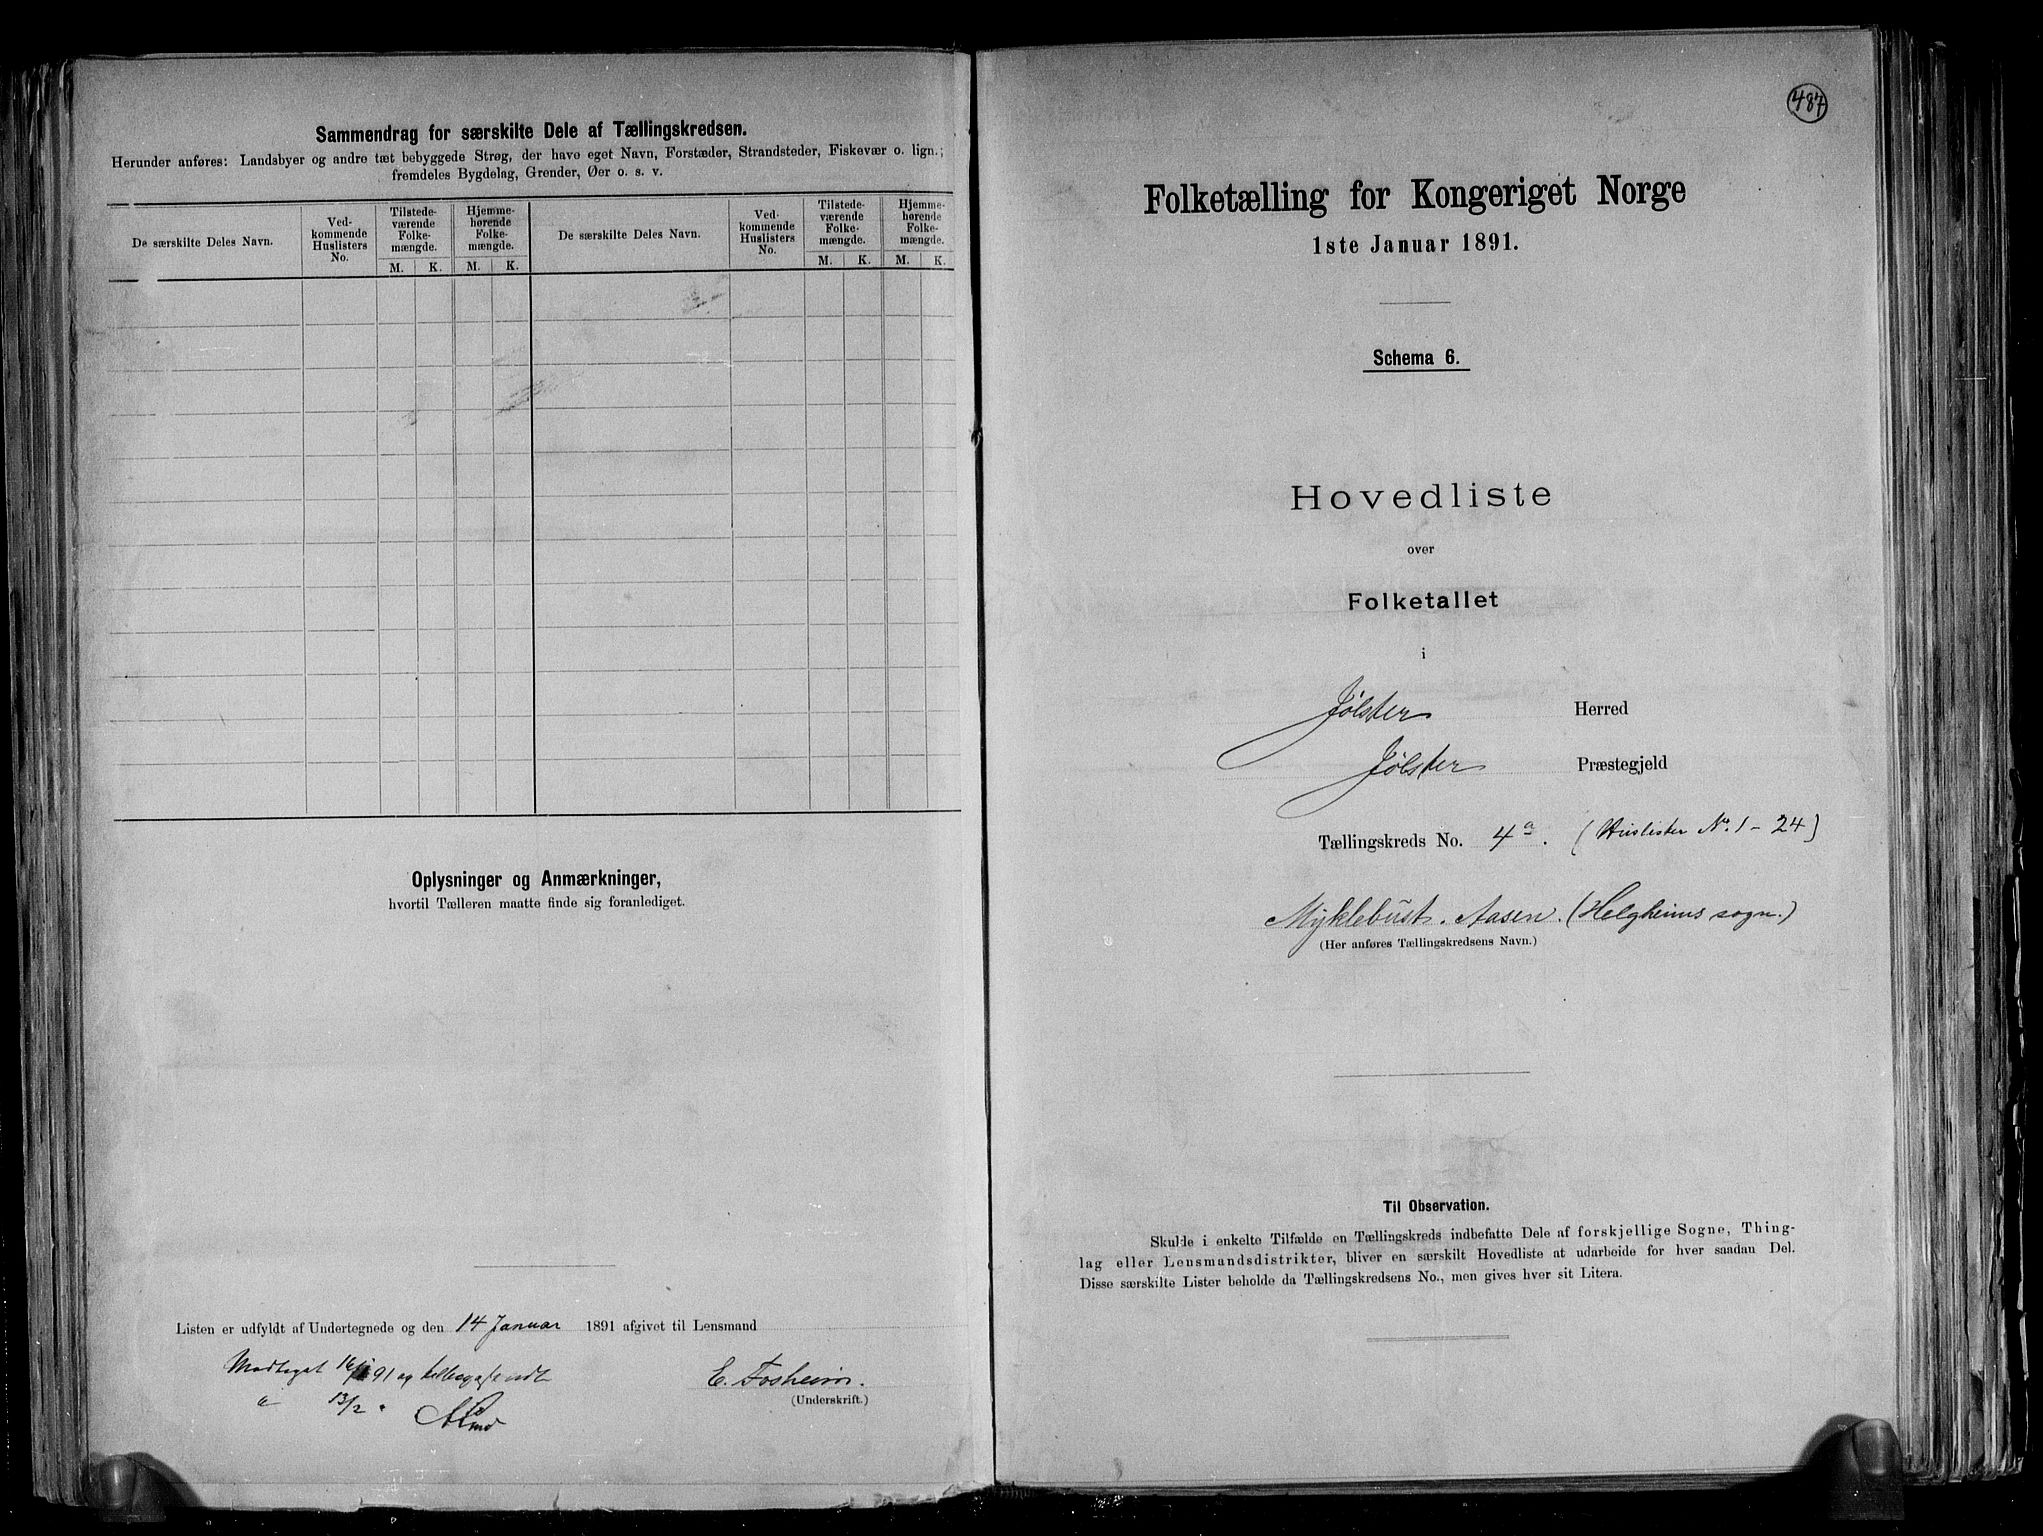 Sammendrag for særskilte Dele af Tællingskredsen.
Herunder anføres: Landsbyer og andre tæt bebyggede Strøg, der have eget Navn, Forstæder, Strandsteder, Fiskevær o. lign.;
fremdeles Bygdelag, Grender, Øer o. s. v.
De særskilte Deles Navn.
Ved-
kommende
Huslisters
No.
Tilstede-
værende
Folke-
mængde.
Hjemme-
hørende
Folke-
mængde.
M. K. M. K.
De særskilte Deles Navn.
Ved-
kommende
Huslisters
No.
Tilstede-
værende
Folke-
mængde.
Hjemme-
hørende
Folke-
mængde.
M. K. M. K.
Oplysninger og Anmærkninger,
hvortil Tælleren maatte finde sig foranlediget.
Listen er udfyldt af Undertegnede og den 14 Januar 1891 afgivet til Lensmand
Modtaget 16/1 91 og
13/2
E. Fosheim.
(Underskrift.)
487
Folketælling for Kongeriget Norge
1ste Januar 1891.
Schema 6.
Hovedliste
over
Folketallet
i
Jølster Herred
Jølster Præstegjeld
Tællingskreds No. 4a. (Huslister No. 1-24)
Myklebust-Aasen. (Helgheims sogn.)
(Her anføres Tællingskredsens Navn.)
Til Observation.
Skulde i enkelte Tilfælde en Tællingskreds indbefatte Dele af forskjellige Sogne, Thing-
lag eller Lensmandsdistrikter, bliver en særskilt Hovedliste at udarbeide for hver saadan Del.
Disse særskilte Lister beholde da Tællingskredsens No., men gives hver sit Litera.